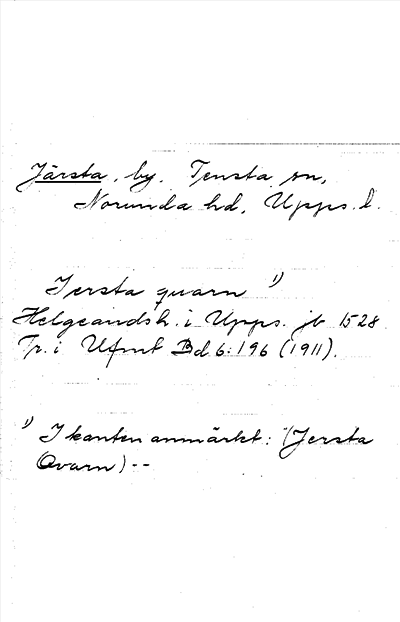 Järsta, by. Tensta sn,
Norunda hd, Upps. l.
Iersta quarn 1)
Helgeandsh. i Upps. jb 1528
Tr. i Ufmt Bd 6:196 (1911).
1) I kanten anmärkt: (Jersta
Qvarn) --